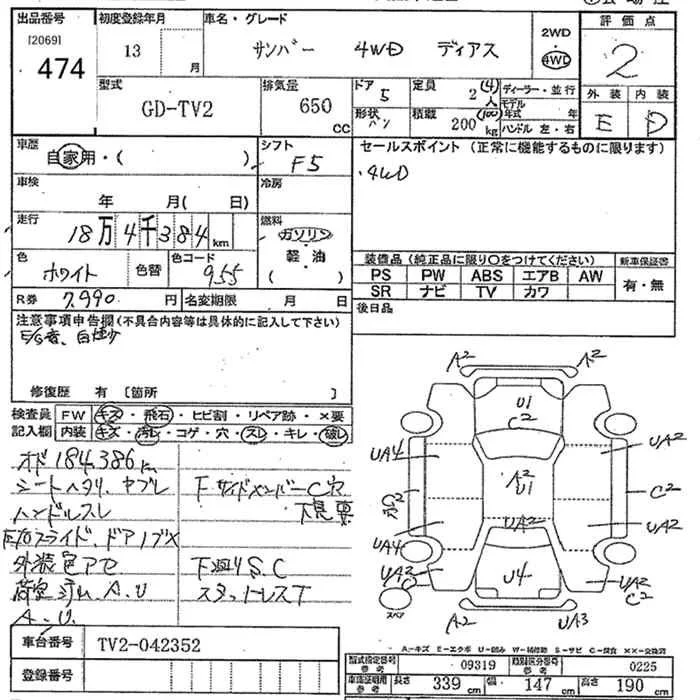 出品番号
[2069]
474
初度登録年月
13
月
車名・グレード
サンバー 4WD ディアス
2WD
4WD
評価点
2
型式
GD-TV2
排気量
650
CC
ドア
5
形状
バン
定員
2(4)
人
積載
200
kg
ディーラー・並行
モデル
年式 年
ハンドル 左・右
外装
内装
E
D
車歴
自家用・( )
シフト
F5
セールスポイント(正常に機能するものに限ります)
・4WD
車検
年 月( 日)
冷房
走行
18万4千384km
燃料
ガソリン
軽・油
( )
色
ホワイト
色替
色コード
955
装備品(純正品に限り○をつけてください)
新車保証書
PS PW ABS エアB AW
SR ナビ TV カワ
有・無
R券
7,990 円
名変期限 月 日
後日品
注意事項申告欄(不具合内容等は具体的に記入して下さい)
E/G音、白煙少
修復歴 有 〔箇所 〕
検査員
記入欄
FW キズ・飛石・ヒビ割・リペア跡・×要
内装 キズ・汚レ・コゲ・穴・スレ・キレ・破レ
オド184,386km
シートヘタリ、ヤブレ
ハンドルスレ
スライドドアノブ×
外装色アセ
A.U
A.U.
下サイドメンバーC穴
下見要
下廻りS.C
スタットレスT
A2
A2
U1
C2
UA4
UA2
A2
U1
C2
穴
C2
UA2
UA4
UA2
UA2
C2
U4
UA2
C2
スペア
A2
UA3
車台番号
TV2-042352
登録番号
A-キズ E-エクボ U-凹み W-補修跡 S-サビ C-腐食 XX-交換済
型式指定番号
09319
類別区分番号
0225
車検証明用
参考
長さ 339 cm
幅 147 cm
高さ 190 cm